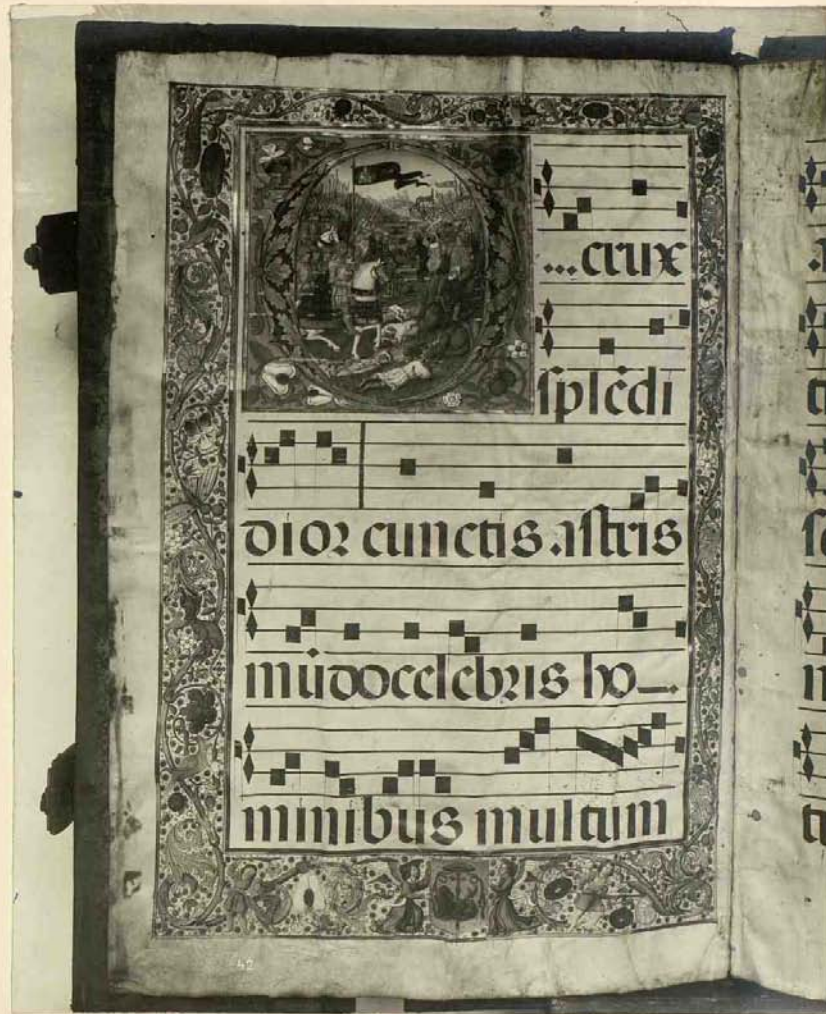 O ... crux
splēdi
dior cunctis astris
mūdo celebris ho–
minibus multum
42